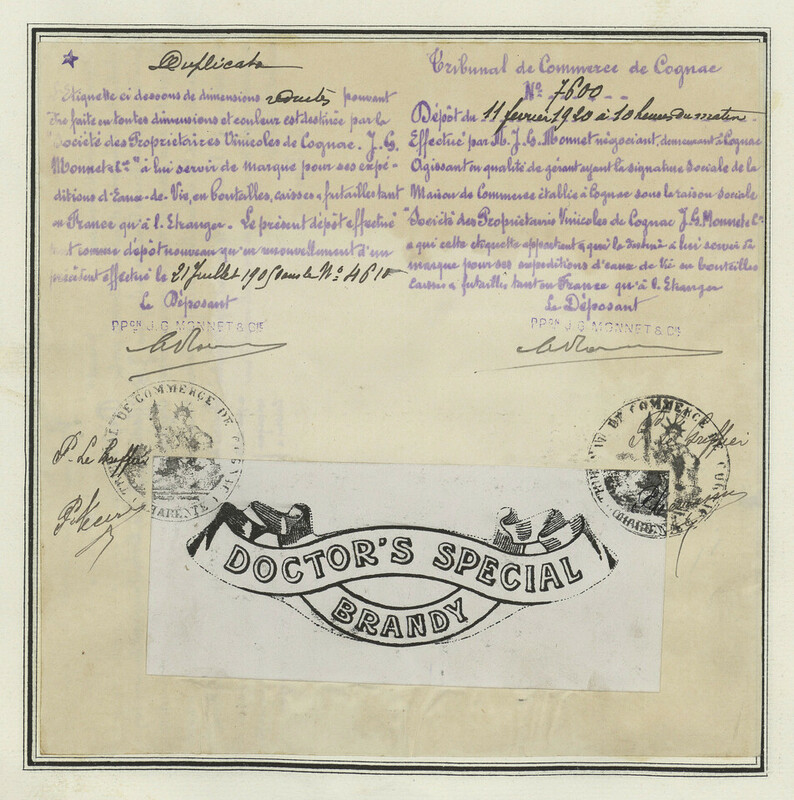 Duplicata
Etiquette ci dessous de dimensions réduites pouvant
être faite en toutes dimensions et couleur est destinée par la
Société des Propriétaires Vinicoles de Cognac. J. G.
Monnet & Cie à lui servir de marque pour ses expé-
ditions d'Eaux-de-Vie, en bouteilles, caisses & futailles tant
en France qu'à l'Etranger. Le présent dépôt effectué
tant comme dépôt nouveau qu'en renouvellement d'un
précédent effectué le 21 Juillet 1905 sous le No 4610
Le Déposant
PPON J. G. MONNET & CIE
Tribunal de Commerce de Cognac
No 7600
Dépôt du 11 février 1920 à 10 heures du matin
Effectué par M. J. G. Monnet négociant, demeurant à Cognac
Agissant en qualité de gérant ayant la signature sociale de la
Maison de Commerce établie à Cognac sous la raison sociale
"Société des Propriétaires Vinicoles de Cognac J. G. Monnet & Cie
à qui cette etiquette appartient & qui le destine à lui servir de
marque pour ses expéditions d'eaux de Vie en bouteilles
caisses & futailles tant en France qu'à l'Etranger
Le Déposant
PPON J. G. MONNET & CIE
DE COMMERCE DE COGNAC
CHARENTE
P. Le Greffier
DE COMMERCE DE COGNAC
CHARENTE
P. Le Greffier
DOCTOR'S SPECIAL
BRANDY